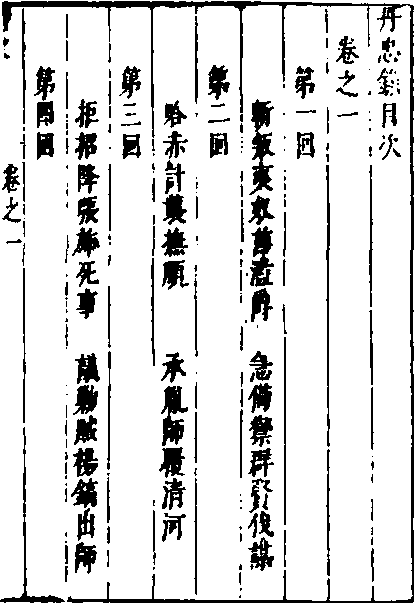 丹忠錄目次
卷之一
第一回
斬叛夷奴酋濫爵 急備禦群賢伐謀
第二回
哈赤計襲撫順 承胤師覆清河
第三回
拒招降張斾死事 議勦賊楊鎬出師
第四回
卷之一